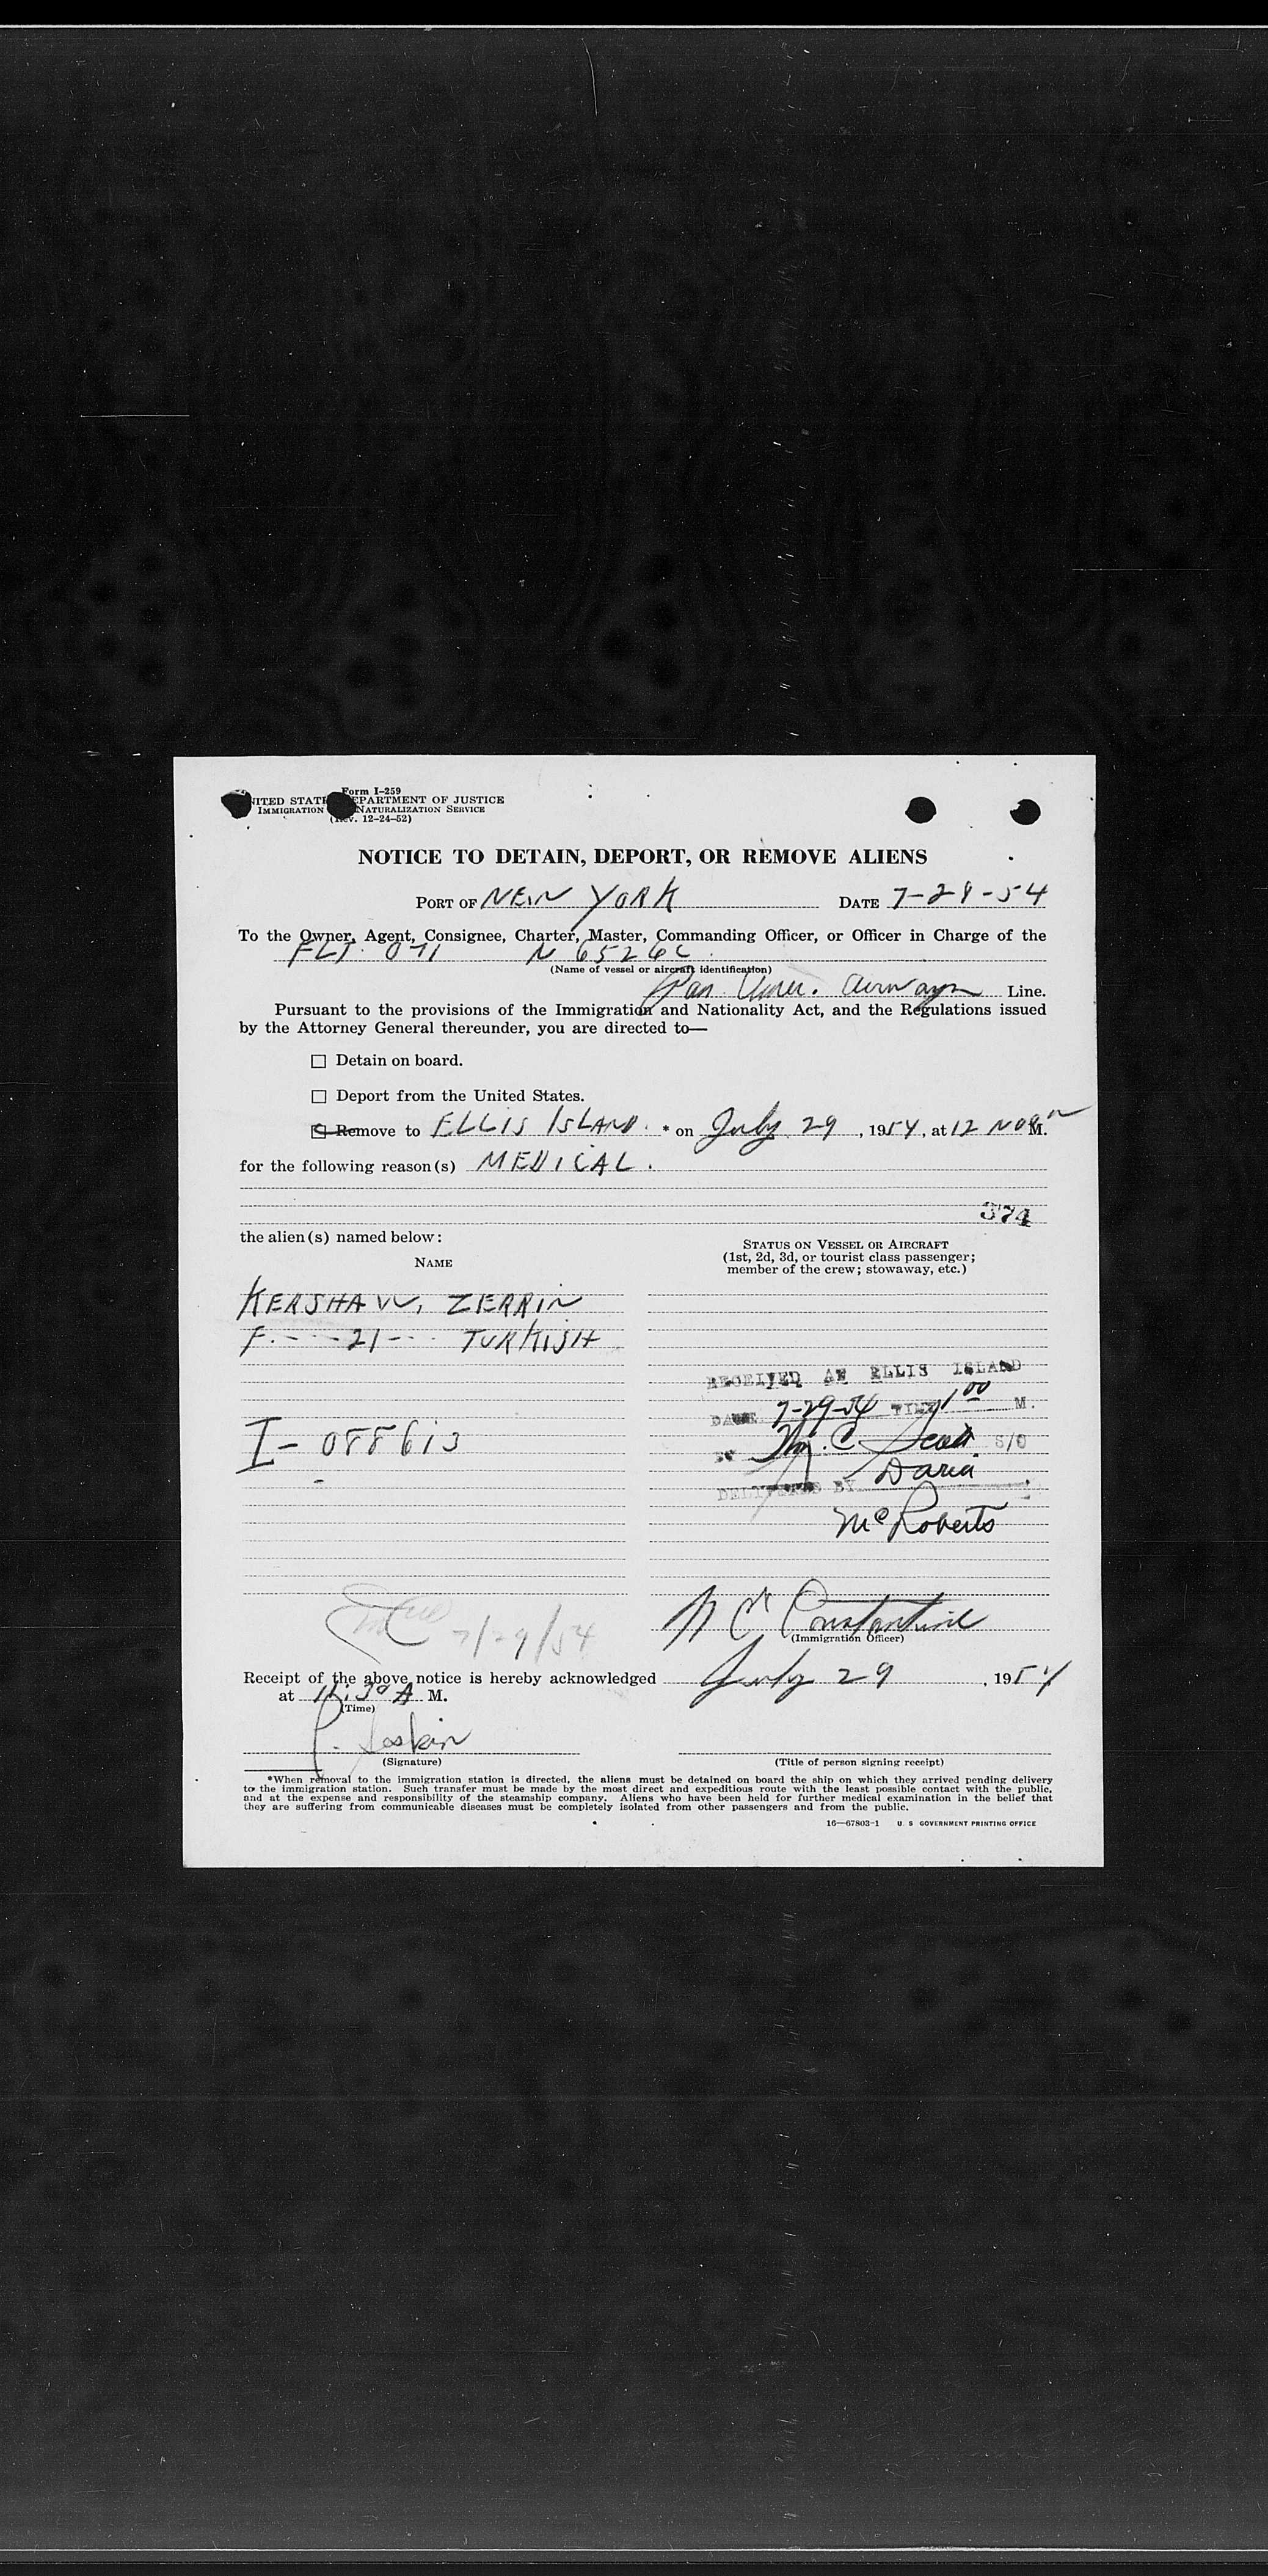 Form I-259
UNITED STATES DEPARTMENT OF JUSTICE
IMMIGRATION NATURALIZATION SERVICE
(Rev. 12-24-52)
NOTICE TO DETAIN, DEPORT, OR REMOVE ALIENS
PORT OF NEW YORK DATE 7-29-54
To the Owner, Agent, Consignee, Charter, Master, Commanding Officer, or Officer in Charge of the
FLT. 071 N 6526C
(Name of vessel or aircraft identification)
Pan Amer. Airways Line.
Pursuant to the provisions of the Immigration and Nationality Act, and the Regulations issued
by the Attorney General thereunder, you are directed to—
☐ Detain on board.
☐ Deport from the United States.
Remove to ELLIS ISLAND. * on July 29, 1954, at 12 NOON M.
for the following reason(s) MEDICAL.
374
the alien(s) named below:
NAME
STATUS ON VESSEL OR AIRCRAFT
(1st, 2d, 3d, or tourist class passenger;
member of the crew; stowaway, etc.)
KERSHAW, ZERRIN
F. - - - 21 - - - TURKISH
RECEIVED AT ELLIS ISLAND
DATE 7-29-54 TIME 1 00 M.
I - 088613
BY Wm. C. Scott S/O
DELIVERED BY Daria
McRoberts
7/29/54
Constantine
(Immigration Officer)
Receipt of the above notice is hereby acknowledged July 29, 1954
at 11:30 A M.
(Time)
(Signature) (Title of person signing receipt)
*When removal to the immigration station is directed, the aliens must be detained on board the ship on which they arrived pending delivery
to the immigration station. Such transfer must be made by the most direct and expeditious route with the least possible contact with the public,
and at the expense and responsibility of the steamship company. Aliens who have been held for further medical examination in the belief that
they are suffering from communicable diseases must be completely isolated from other passengers and from the public.
16—67803-1 U. S GOVERNMENT PRINTING OFFICE